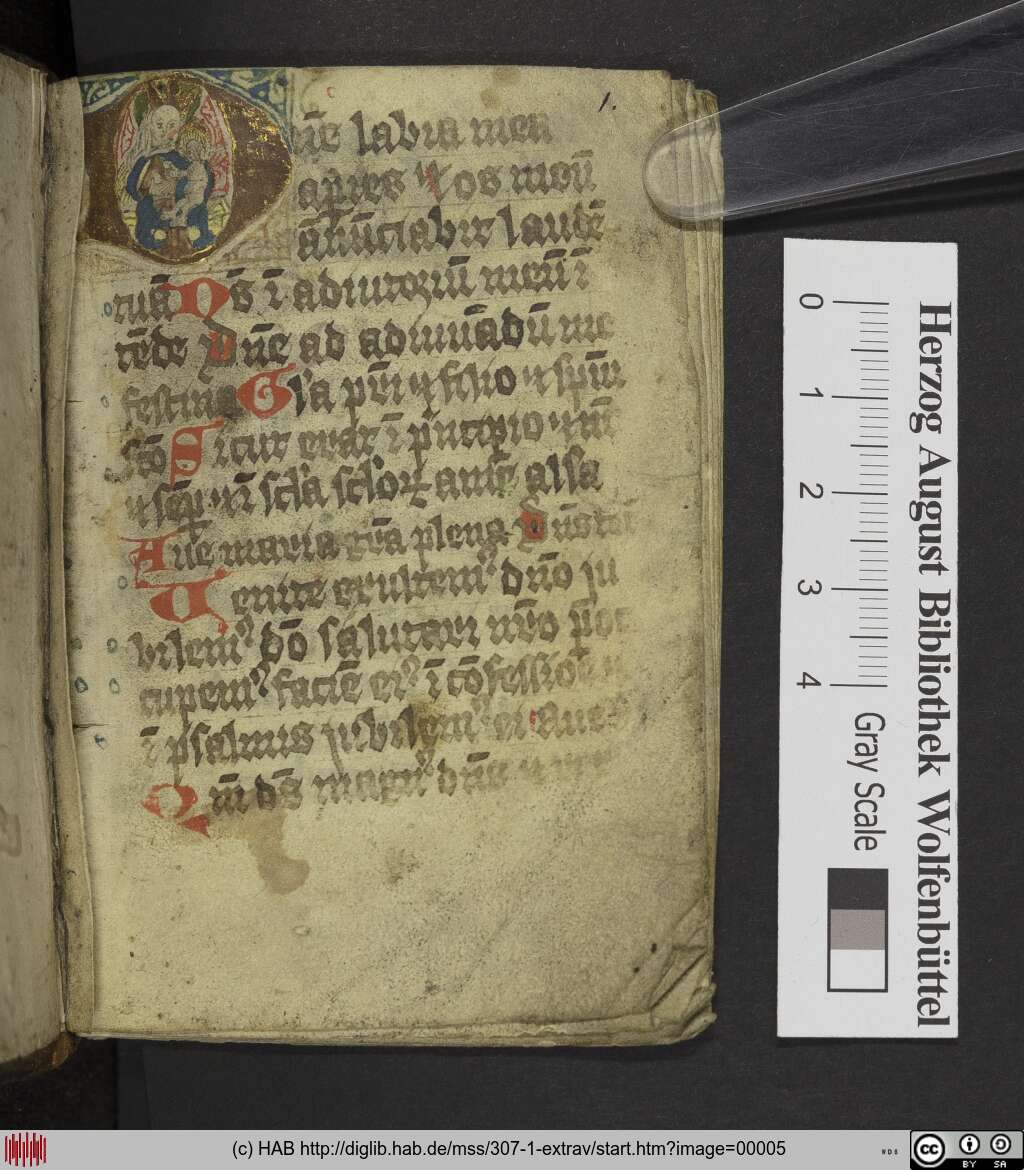 1.
ne labia mea
apies os meū
ānūciabit laudē
tuā Ds ī adiutoriū meū ī
tēde Dne ad adiuuādū me
festina Gla pr̄i ⁊ filio ⁊ spūi
scō Sicut erat ī pncipio ⁊ nūc
⁊ semp ⁊ ī scla scloꝝ amē alla
Aue maria gra plena Dns
Uenite exultemꝰ dno iu
bilemꝰ dō salutari nr̄o
cupemꝰ faciē eiꝰ ī cōfessiōe
ī psalmis iubilemꝰ ei Aue
Qm̄ ds magnꝰ dns
0
1
2
3
4
Gray Scale
Herzog August Bibliothek Wolfenbüttel
(c) HAB http://diglib.hab.de/mss/307-1-extrav/start.htm?image=00005
cc BY SA